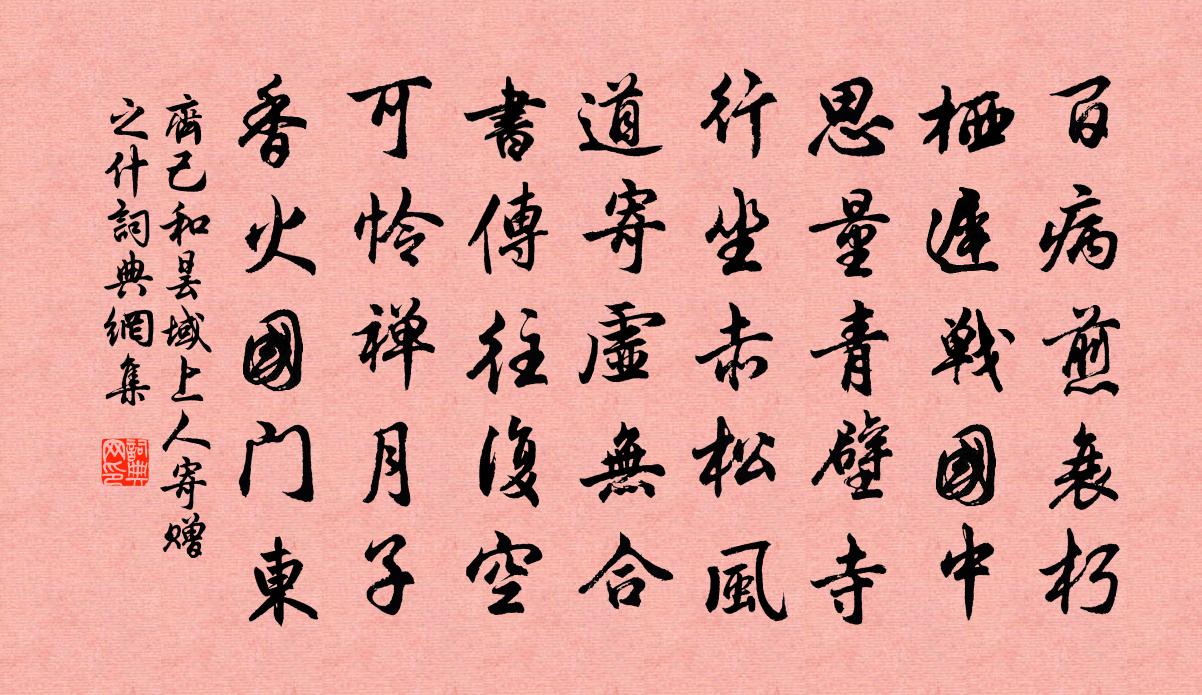 百病煎衰朽
栖遲戰國中
思量青壁寺
行坐赤松風
道寄虛無合
書傳往復空
可怜禅月子
香火國门東
齊己和昙域上人寄赠
之什詞典網集
詞典网印